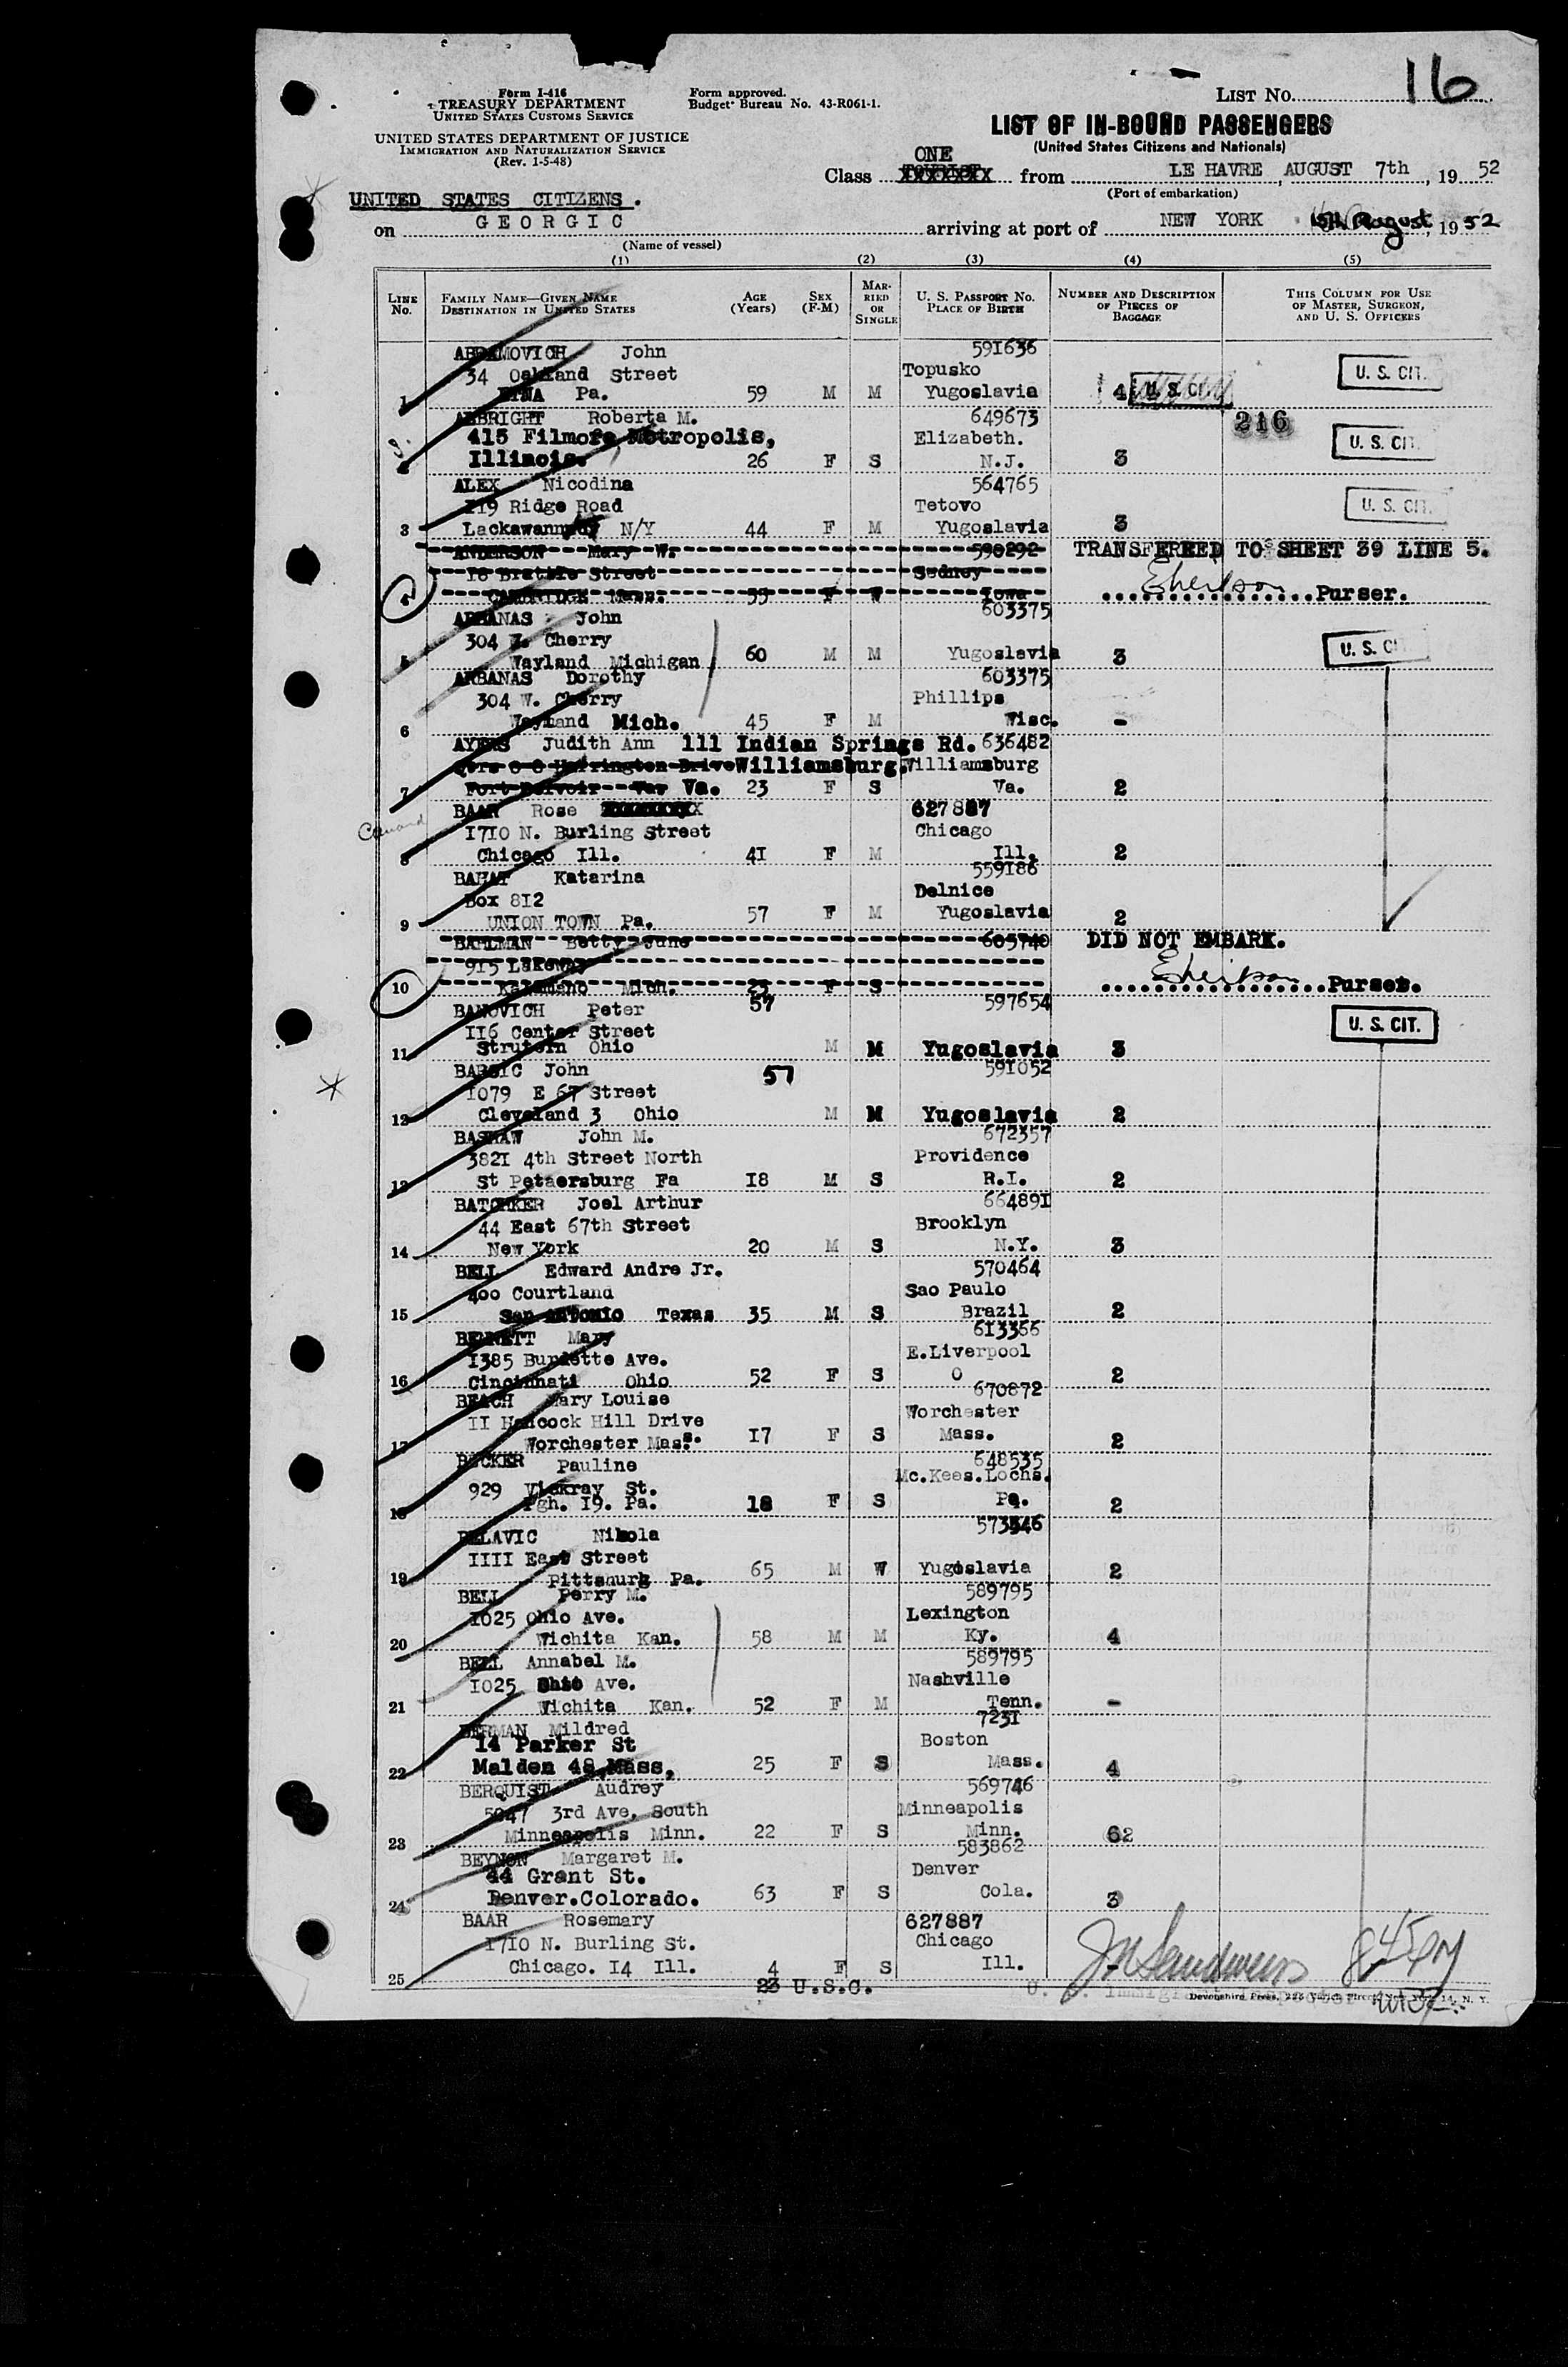 16
Form I-416
TREASURY DEPARTMENT
UNITED STATES CUSTOMS SERVICE
Form approved.
Budget Bureau No. 43-R061-1.
LIST NO.
UNITED STATES DEPARTMENT OF JUSTICE
IMMIGRATION AND NATURALIZATION SERVICE
(Rev. 1-5-48)
LIST OF IN-BOUND PASSENGERS
(United States Citizens and Nationals)
ONE
Class XXXXXXXX from LE HAVRE, AUGUST 7th, 19 52
(Port of embarkation)
UNITED STATES CITIZENS .
on GEORGIC arriving at port of NEW YORK August, 19 52
(Name of vessel)
(1) (2) (3) (4) (5)
LINE No. FAMILY NAME—GIVEN NAME DESTINATION IN UNITED STATES AGE (Years) SEX (F-M) MARRIED OR SINGLE U. S. PASSPORT NO. PLACE OF BIRTH NUMBER AND DESCRIPTION OF PIECES OF BAGGAGE THIS COLUMN FOR USE OF MASTER, SURGEON, AND U. S. OFFICERS
ABRAMOVICH John 591636
34 Oakland Street Topusko U. S. CIT.
1 ETNA Pa. 59 M M Yugoslavia 4 U. S. CIT.
ALBRIGHT Roberta M. 649673 216
415 Filmore Metropolis, Elizabeth. U. S. CIT.
Illinois. 26 F S N.J. 3
ALEX Nicodina 564765
119 Ridge Road Tetovo U. S. CIT.
3 Lackawanna N/Y 44 F M Yugoslavia 3
ANDERSON Mary W. 590292 TRANSFEREED TO SHEET 39 LINE 5.
18 Brattle Street Sedney
4 CAMBRIDGE Mass. 55 F W Iowa Purser.
ARBANAS John 603375
304 W. Cherry U. S. CIT.
5 Wayland Michigan 60 M M Yugoslavia 3
ARBANAS Dorothy 603375
304 W. Cherry Phillips
6 Wayland Mich. 45 F M Wisc. -
AYERS Judith Ann 111 Indian Springs Rd. 636482
Harrington Drive Williamsburg. Williamsburg
7 Fort Belvoir Va. 23 F S Va. 2
BAAR Rose 627887
1710 N. Burling Street Chicago
8 Chicago Ill. 41 F M Ill. 2
BAHAT Katarina 559186
Box 812 Delnice
9 UNION TOWN Pa. 57 F M Yugoslavia 2
BAHLMAN Betty June 605740 DID NOT EMBARK.
915 Lakeway
10 Mich. 23 F S Purser.
BANOVICH Peter 57 597654
116 Center Street U. S. CIT.
11 Ohio M M Yugoslavia 3
BARSIC John 57 591052
1079 E 67 Street
12 Cleveland 3 Ohio M M Yugoslavia 2
BASHAW John M. 672357
3821 4th Street North Providence
13 St Petaersburg Fa 18 M S R.I. 2
BATCHKER Joel Arthur 664891
44 East 67th Street Brooklyn
14 New York 20 M S N.Y. 3
BELL Edward Andre Jr. 570464
400 Courtland Sao Paulo
15 San ANTONIO Texas 35 M S Brazil 2
BENNETT Mary 613366
1385 Burdette Ave. E.Liverpool
16 Cincinnati Ohio 52 F S O 2
BEACH Mary Louise 670872
11 Hancock Hill Drive Worchester
17 Worchester Mass. 17 F S Mass. 2
BECKER Pauline 648535
929 Vickray St. Mc.Kees.Lochs.
18 Pgh. 19. Pa. 18 F S Pa. 2
BELAVIC Nikola 573546
1111 East Street
19 Pittsburg Pa. 65 M W Yugoslavia 2
BELL Perry M. 589795
1025 Ohio Ave. Lexington
20 Wichita Kan. 58 M M Ky. 4
BELL Annabel M. 589795
1025 Ohio Ave. Nashville
21 Wichita Kan. 52 F M Tenn. -
BERMAN Mildred 7231
14 Parker St Boston
22 Malden 48, Mass, 25 F S Mass. 4
BERQUIST Audrey 569746
5047 3rd Ave. South Minneapolis
23 Minneapolis Minn. 22 F S Minn. 62
BEYNON Margaret M. 583862
44 Grant St. Denver
24 Denver.Colorado. 63 F S Cola. 3
BAAR Rosemary 627887
1710 N. Burling St. Chicago
25 Chicago. 14 Ill. 4 F S Ill.
845PM
23 U.S.C.